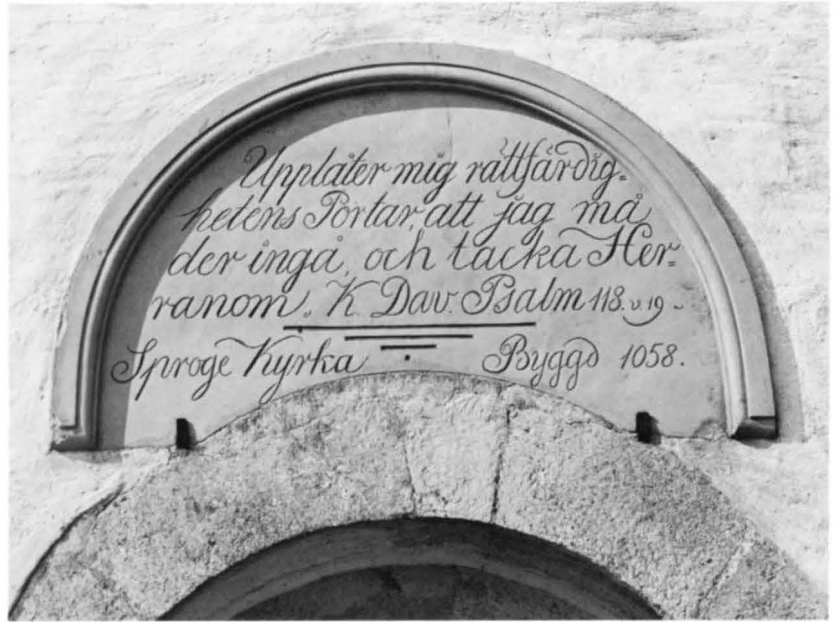 Upplåter mig rättfärdig-
hetens Portar, att jag må
der ingå, och tacka Her-
ranom. K. Dav. Psalm 118. v. 19
Sproge Kyrka Byggd 1058.